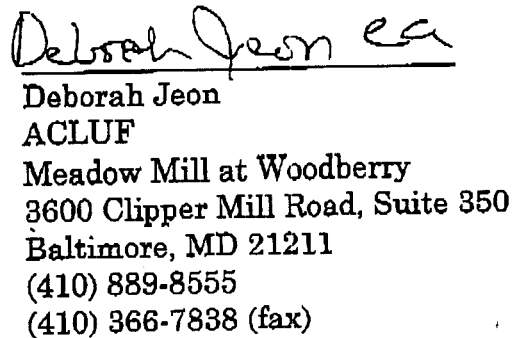 Deborah Jeon ea
Deborah Jeon
ACLUF
Meadow Mill at Woodberry
3600 Clipper Mill Road, Suite 350
Baltimore, MD 21211
(410) 889-8555
(410) 366-7838 (fax)